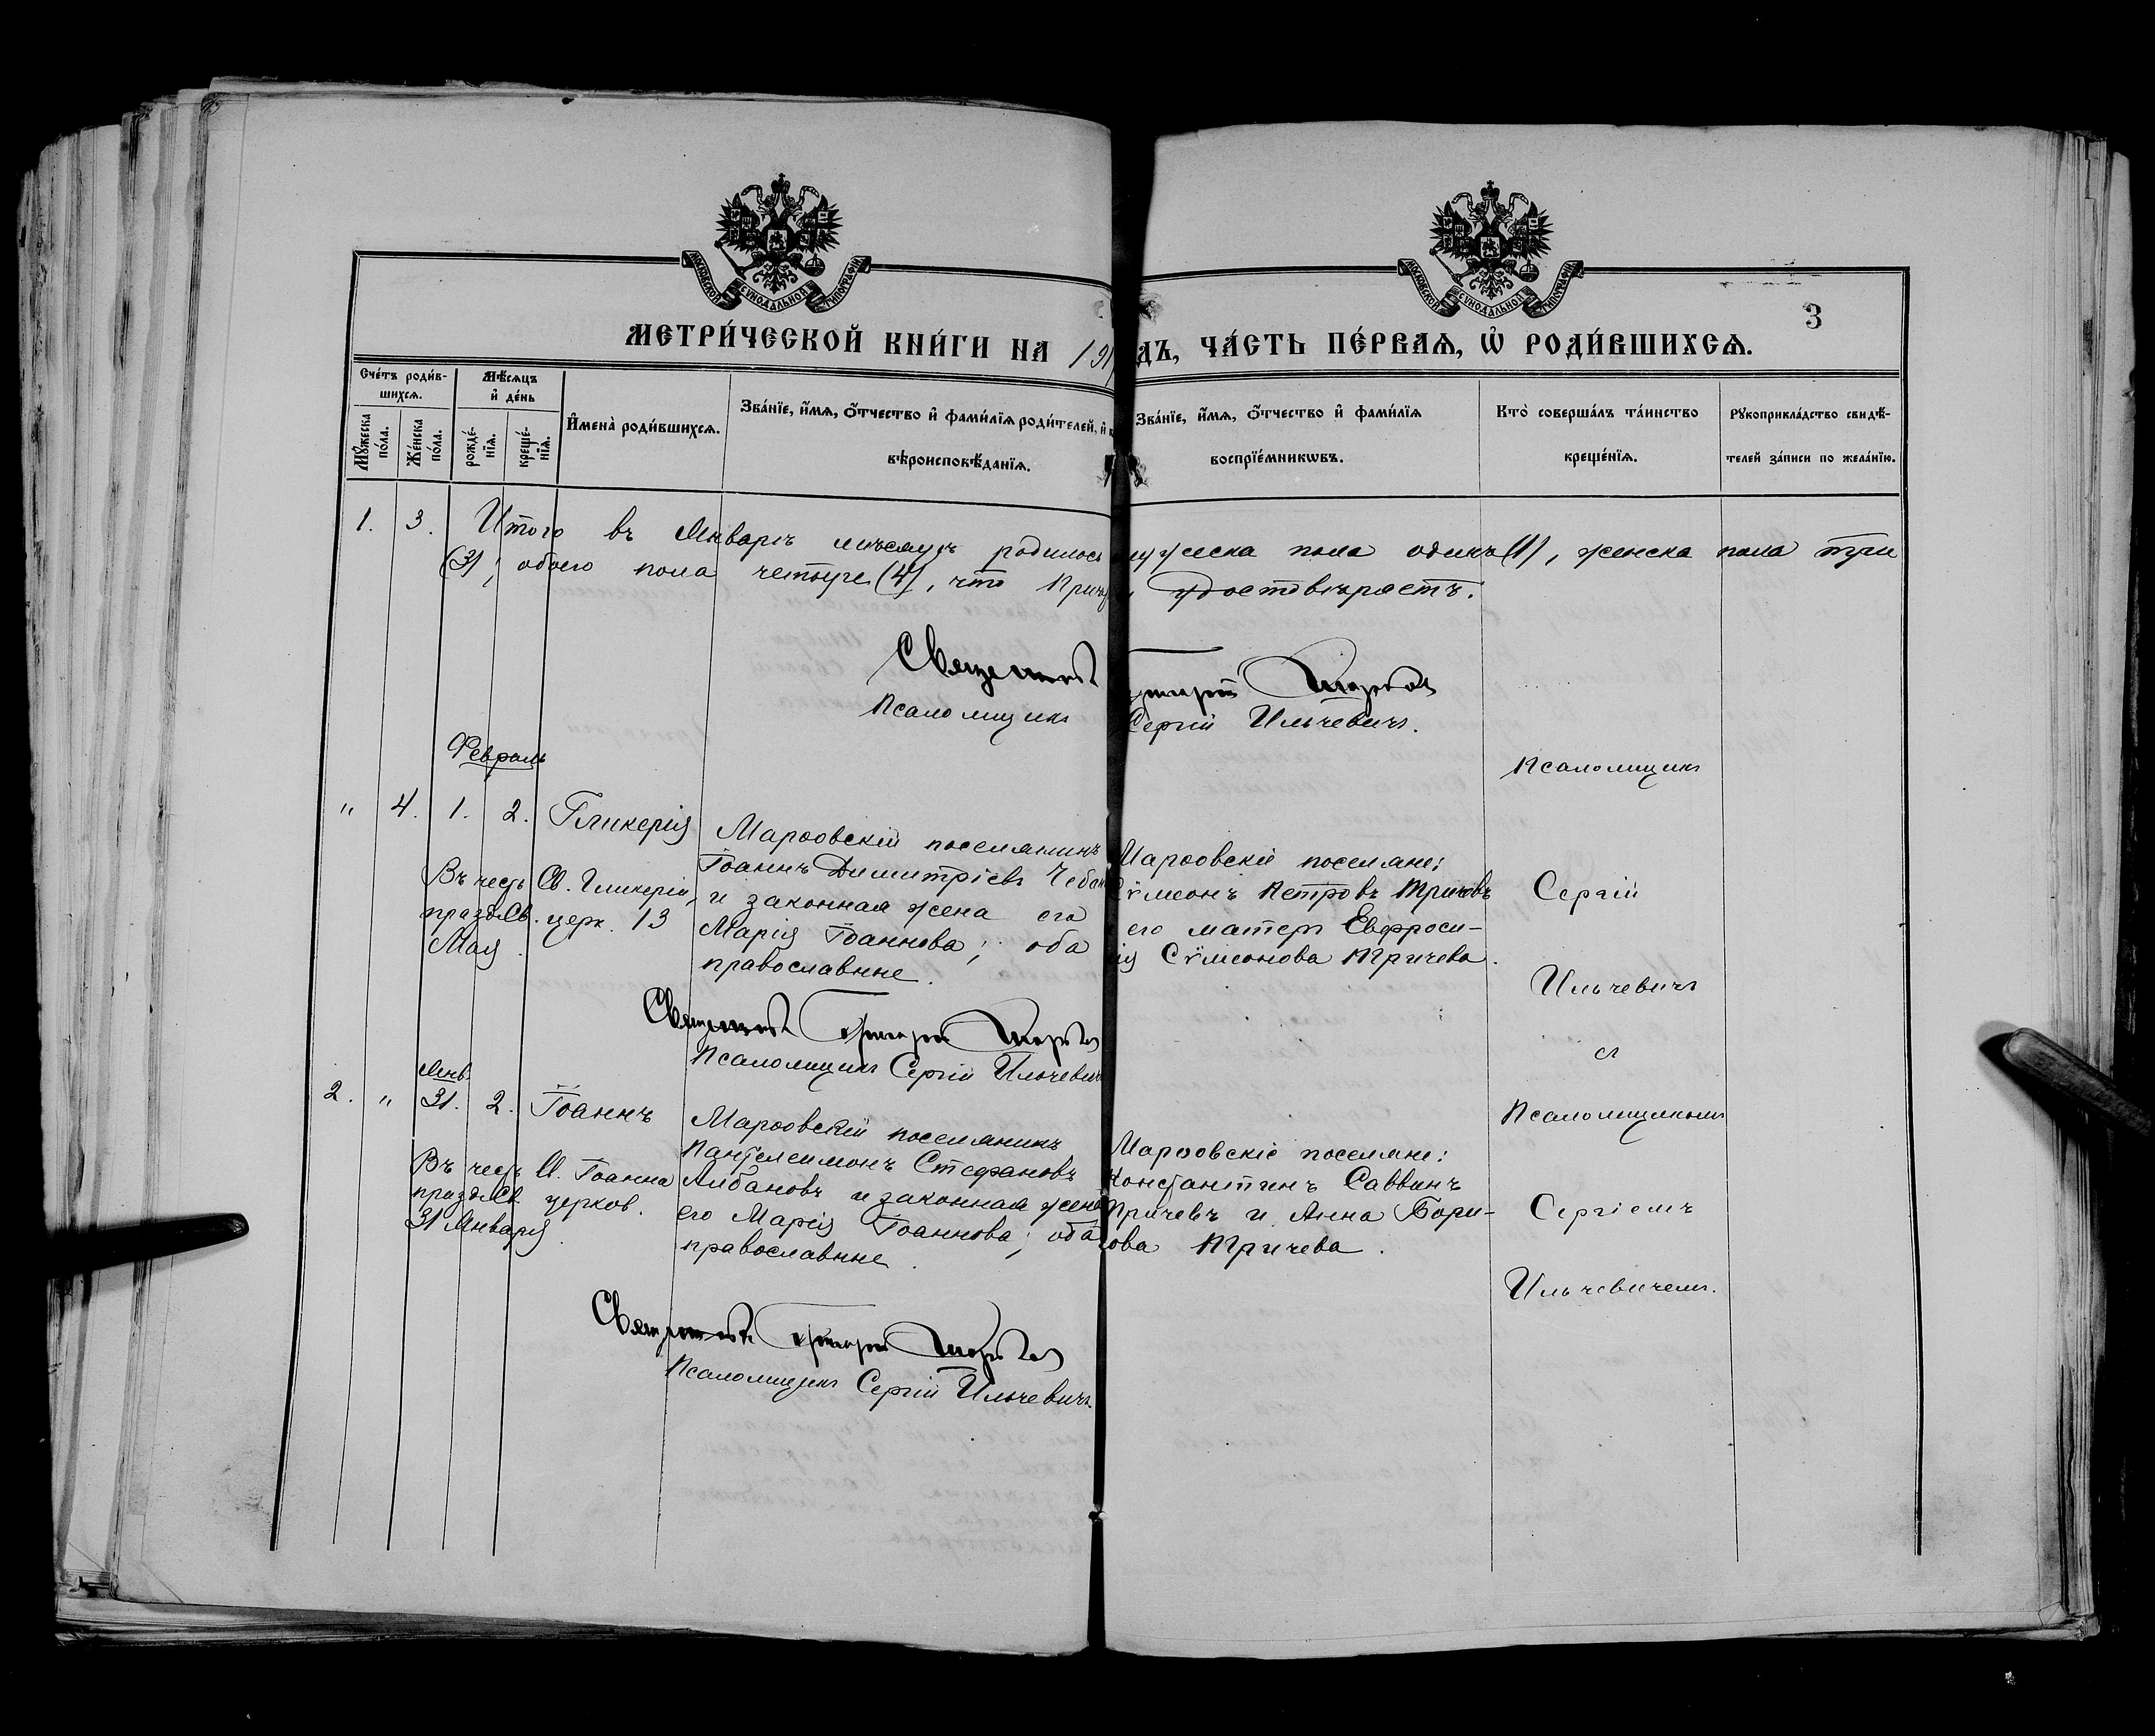 МОСКОВСКОЙ СѴНОДАЛЬНОЙ ТИПОГРАФІИ
МОСКОВСКОЙ СѴНОДАЛЬНОЙ ТИПОГРАФІИ
3
МЕТРИ́ЧЕСКОЙ КНИ́ГИ НА 191 ДЪ, ЧА́СТЬ ПЕ́РВАѦ, Ѽ РОДИ́ВШИХСѦ.
Сче́тъ роди́в-
шихсѧ.
Мѣ́сѧцъ
и҆ де́нь
Мꙋ́жеска по́ла.
Же́нска по́ла.
рожде́-
нїѧ.
креще́-
нїѧ.
И҆мена̀ роди́вшихсѧ.
Зва́нїе, и҆́мѧ, ѻ҆́тчество и҆ фами́лїѧ роди́телей, и҆ к
вѣроисповѣ́данїѧ.
Зва́нїе, и҆́мѧ, ѻ҆́тчество и҆ фами́лїѧ
воспрїе́мникѡвъ.
Кто̀ соверша́лъ та́инство
креще́нїѧ.
Рꙋкоприкла́дство свидѣ́-
телей за́писи по жела́нїю.
1. 3. Итого въ Январѣ мѣсяцѣ родилось мужеска пола одинъ (1), женска пола три
(3), обоего пола четыре (4), что Причтъ удостовѣряетъ.
Священникъ
Псаломщикъ Сергій Ильчевичъ.
Февраль
" 4. 1. 2. Гликерія
Въ честь Св. Гликеріи,
празд. Св. церк. 13
Мая.
Марѳовскій поселянинъ
Іоаннъ Димитріевъ Чебан
и законная жена его
Марія Іоаннова; оба
православные.
Марѳовскіе поселяне:
Сѷмеонъ Петровъ Тричевъ
его матерь Евфроси-
ія Сѷмеонова Тричева.
Псаломщикъ
Сергій
Ильчевичъ
Священникъ
Псаломщикъ Сергій Ильчевичъ
Янв.
2. " 31. 2. Іоаннъ
Въ честь Св. Іоанна
празд. Св. церков.
31 Января.
Марѳовскій поселянинъ
Пантелеимонъ Стефановъ
Албановъ и законная жена
его Марія Іоаннова; оба
православные.
Марѳовскіе поселяне:
Константинъ Саввинъ
Тричевъ и Анна Бори-
сова Тричева.
съ
Псаломщикомъ
Сергіемъ
Ильчевичемъ.
Священникъ
Псаломщикъ Сергій Ильчевичъ.